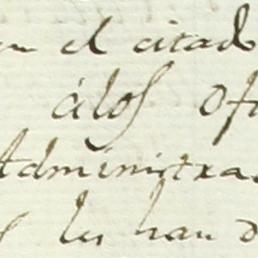 en el citado
álos Ofi
Administra
les han d